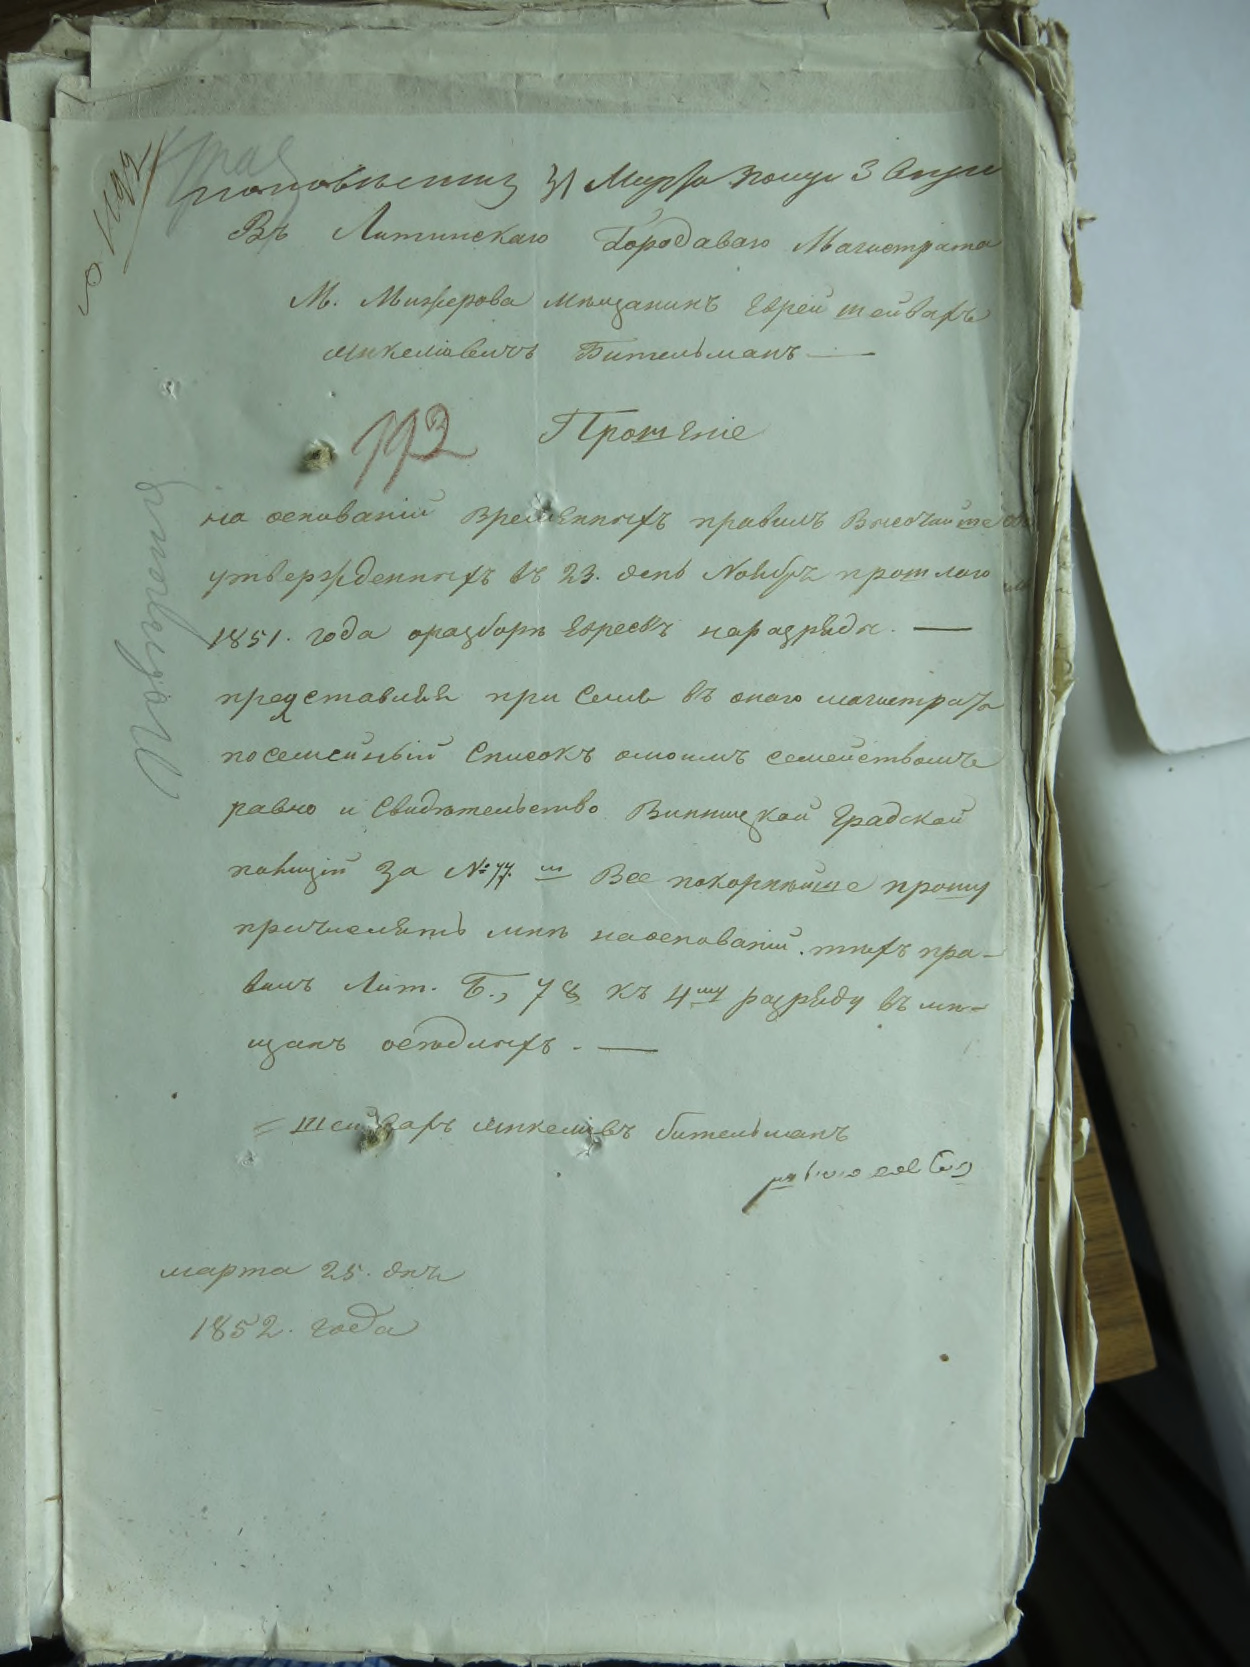 № 1192
31 Марта 3 Апр
Въ Литинскаго Городаваго Магистрата
М. Мизерова Мѣщанинъ Еврей Шейвахъ
Бительманъ —
192 Прошеніе
на основаніи временныхъ правилъ Высочайше
утвержденныхъ въ 23. день Ноября прошлаго
1851. года оразборѣ Евреевъ наразряды. —
представляя при Семъ въ оного магистратъ
посемейный Списокъ омоимъ семействомъ
равно и Свидѣтельство Винницкой Градской
полиціи за № 77. Все покорнѣйше прошу
причислять мнѣ наоснованіи тѣхъ пра-
вилъ Лит. Б., 78 къ 4му разряду въ мѣ-
щанъ осѣдлыхъ. —
Шейвахъ бительманъ
марта 25. дня
1852. года